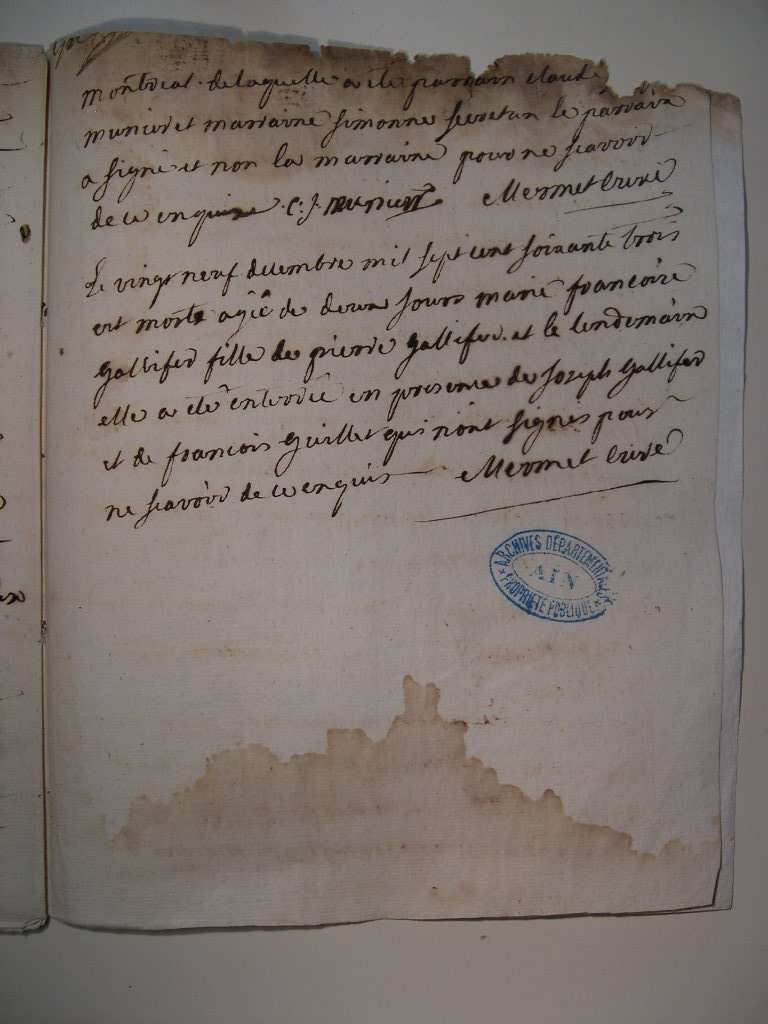 montreal. de laquelle a ete parrain claude
municret marraine simonne secretan le parrain
a signé et non la marraine pour ne scavoir
de ce enquise. C. J. municr Mermet Curé
Le vingt neuf decembre mil sept cent soixante trois
est morte agée de deux jours marie francoise
Gallifer fille de pierre Gallifer. et le lendemain
elle a été enterrée en presence de Joseph Gallifer
et de francois Guillet qui n'ont signes pour
ne scavoir de ce enquis Mermet Curé
ARCHIVES DÉPARTEMENTALES
AIN
PROPRIÉTÉ PUBLIQUE